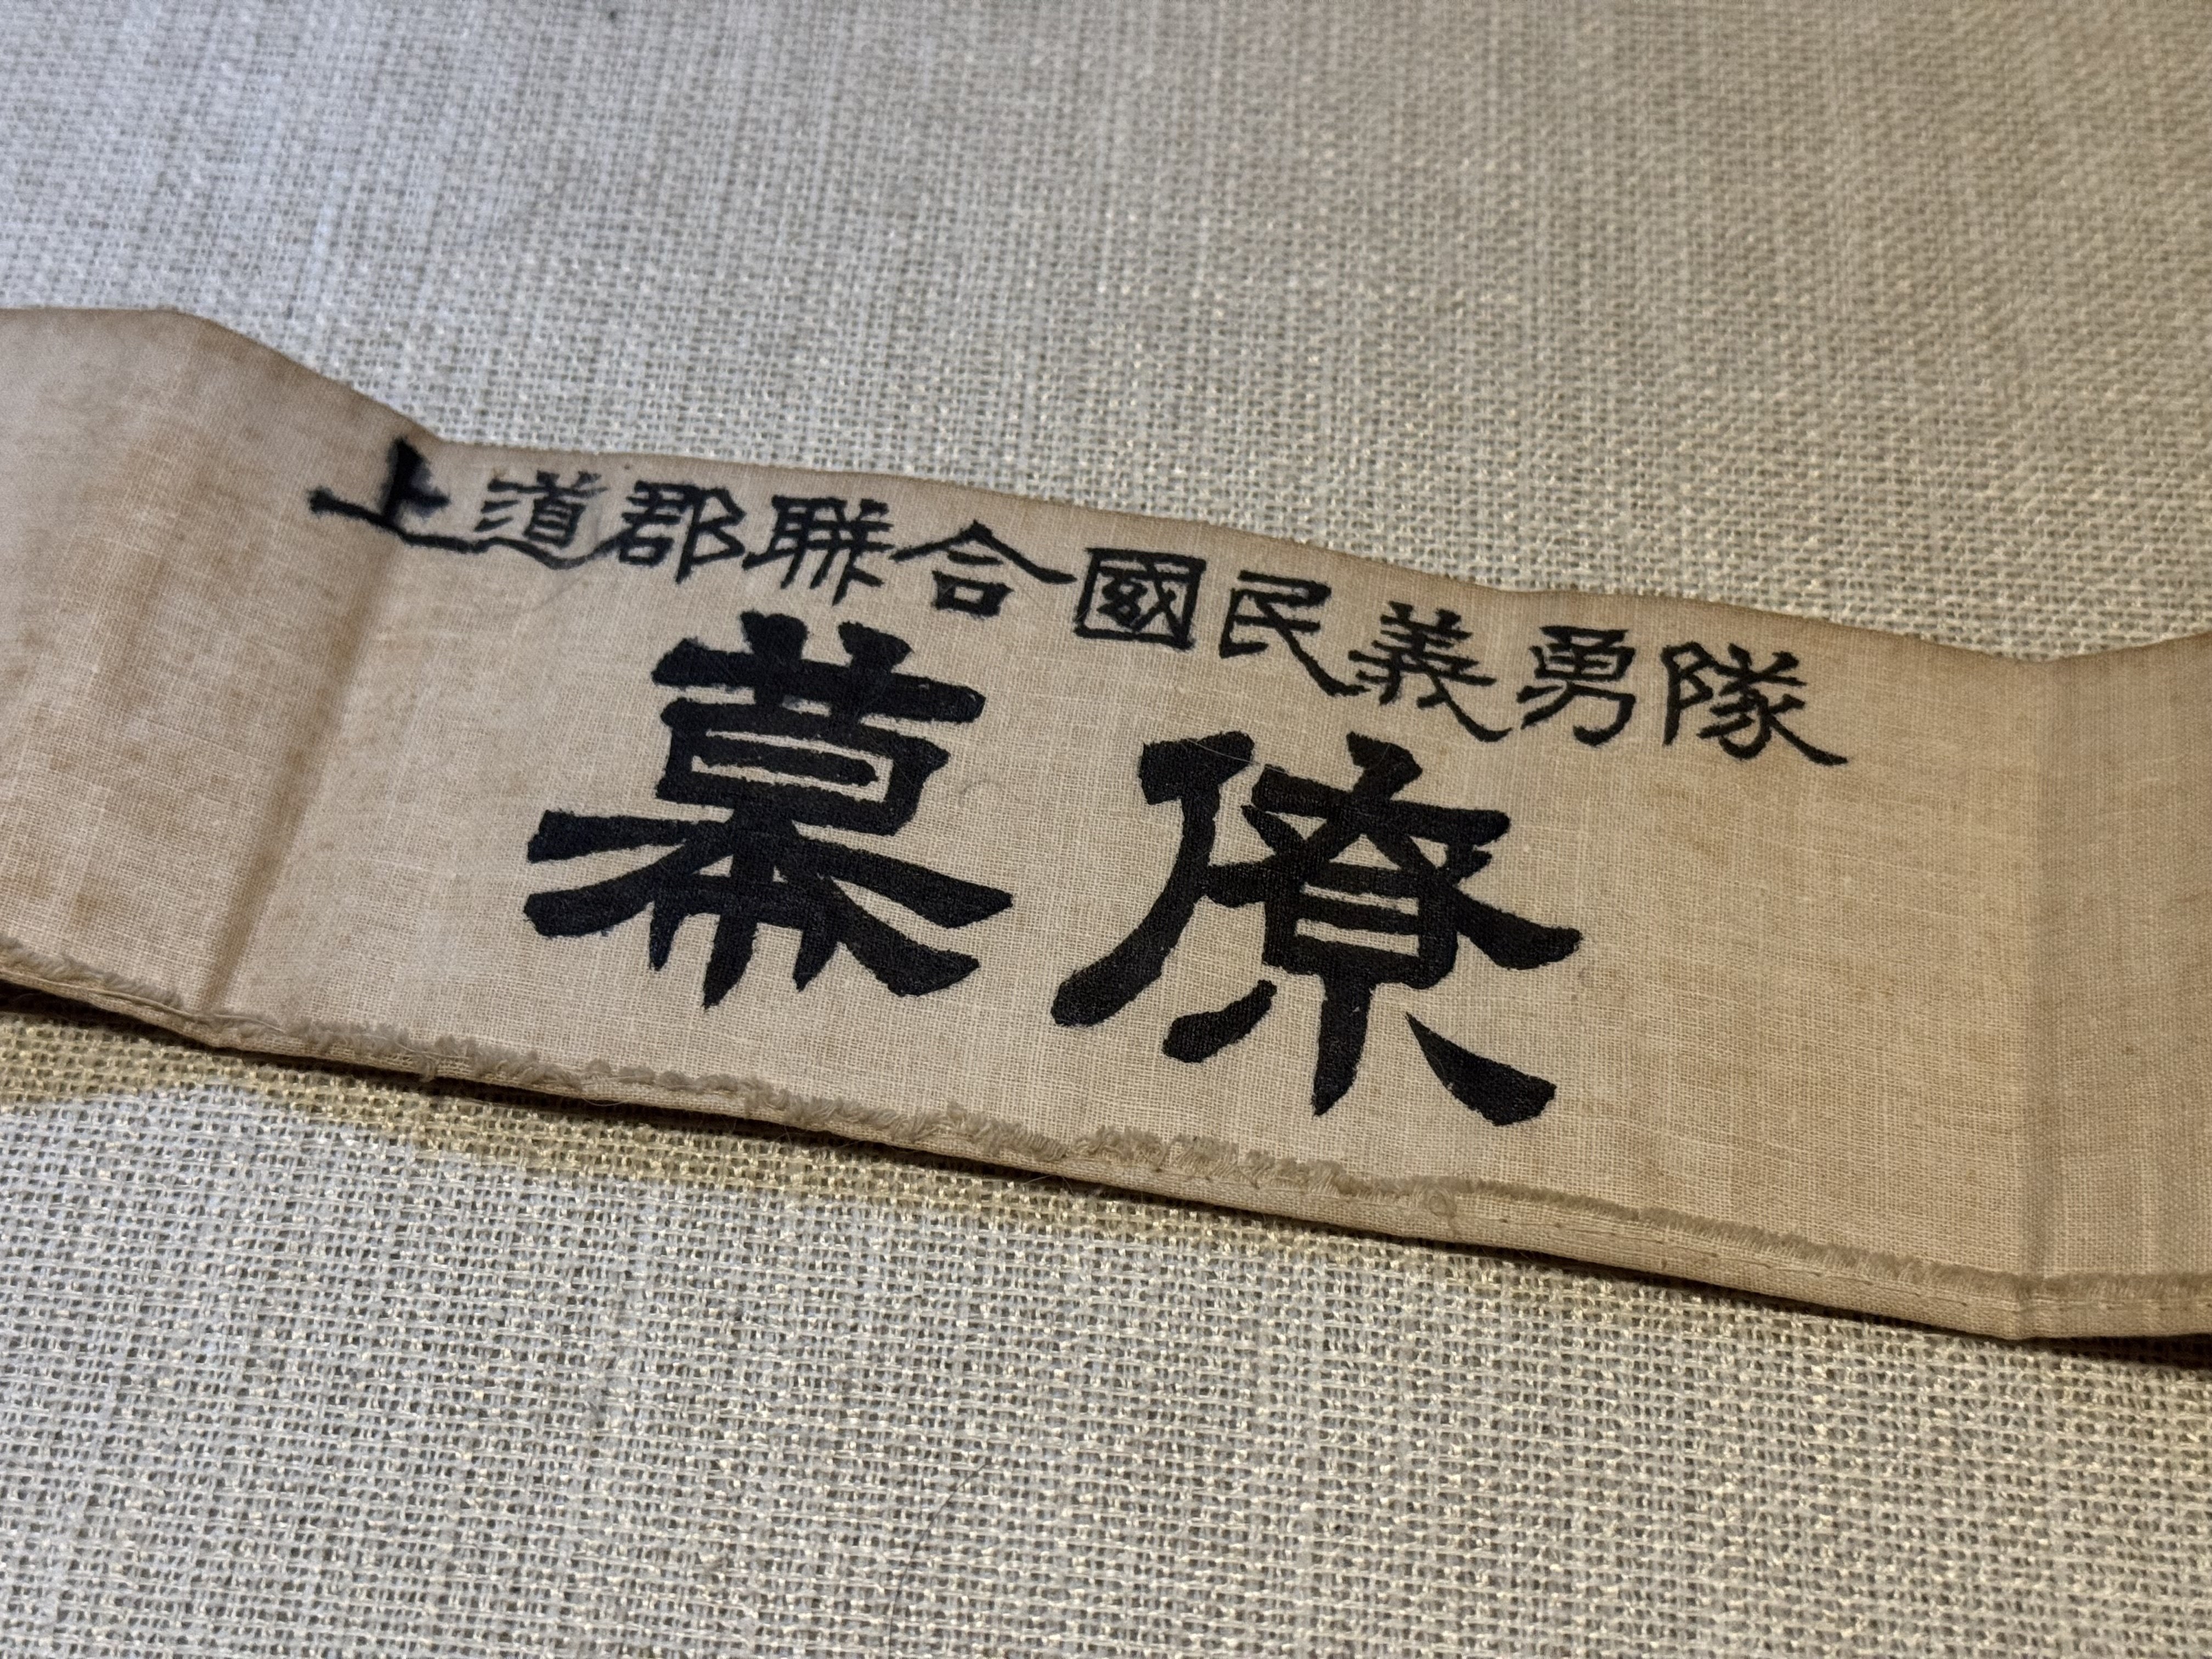 上道郡聯合國民義勇隊
幕僚